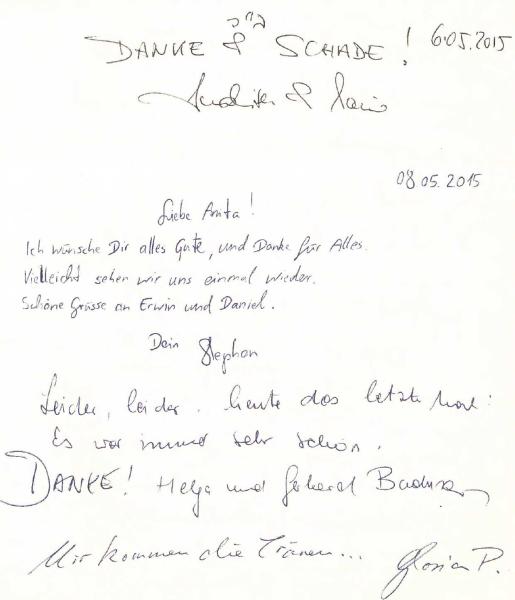 DANKE & SCHADE! 6.05.2015
&
08.05.2015
Liebe Anita!
Ich wünsche Dir alles Gute, und Danke für Alles.
Vielleicht sehen wir uns einmal wieder.
Schöne Grüsse an Erwin und Daniel.
Dein Stephan
Leider, leider. heute das letzte Mal:
Es war immer sehr schön.
DANKE! Helga und Gerhard
Mir kommen die Tränen... Florian P.